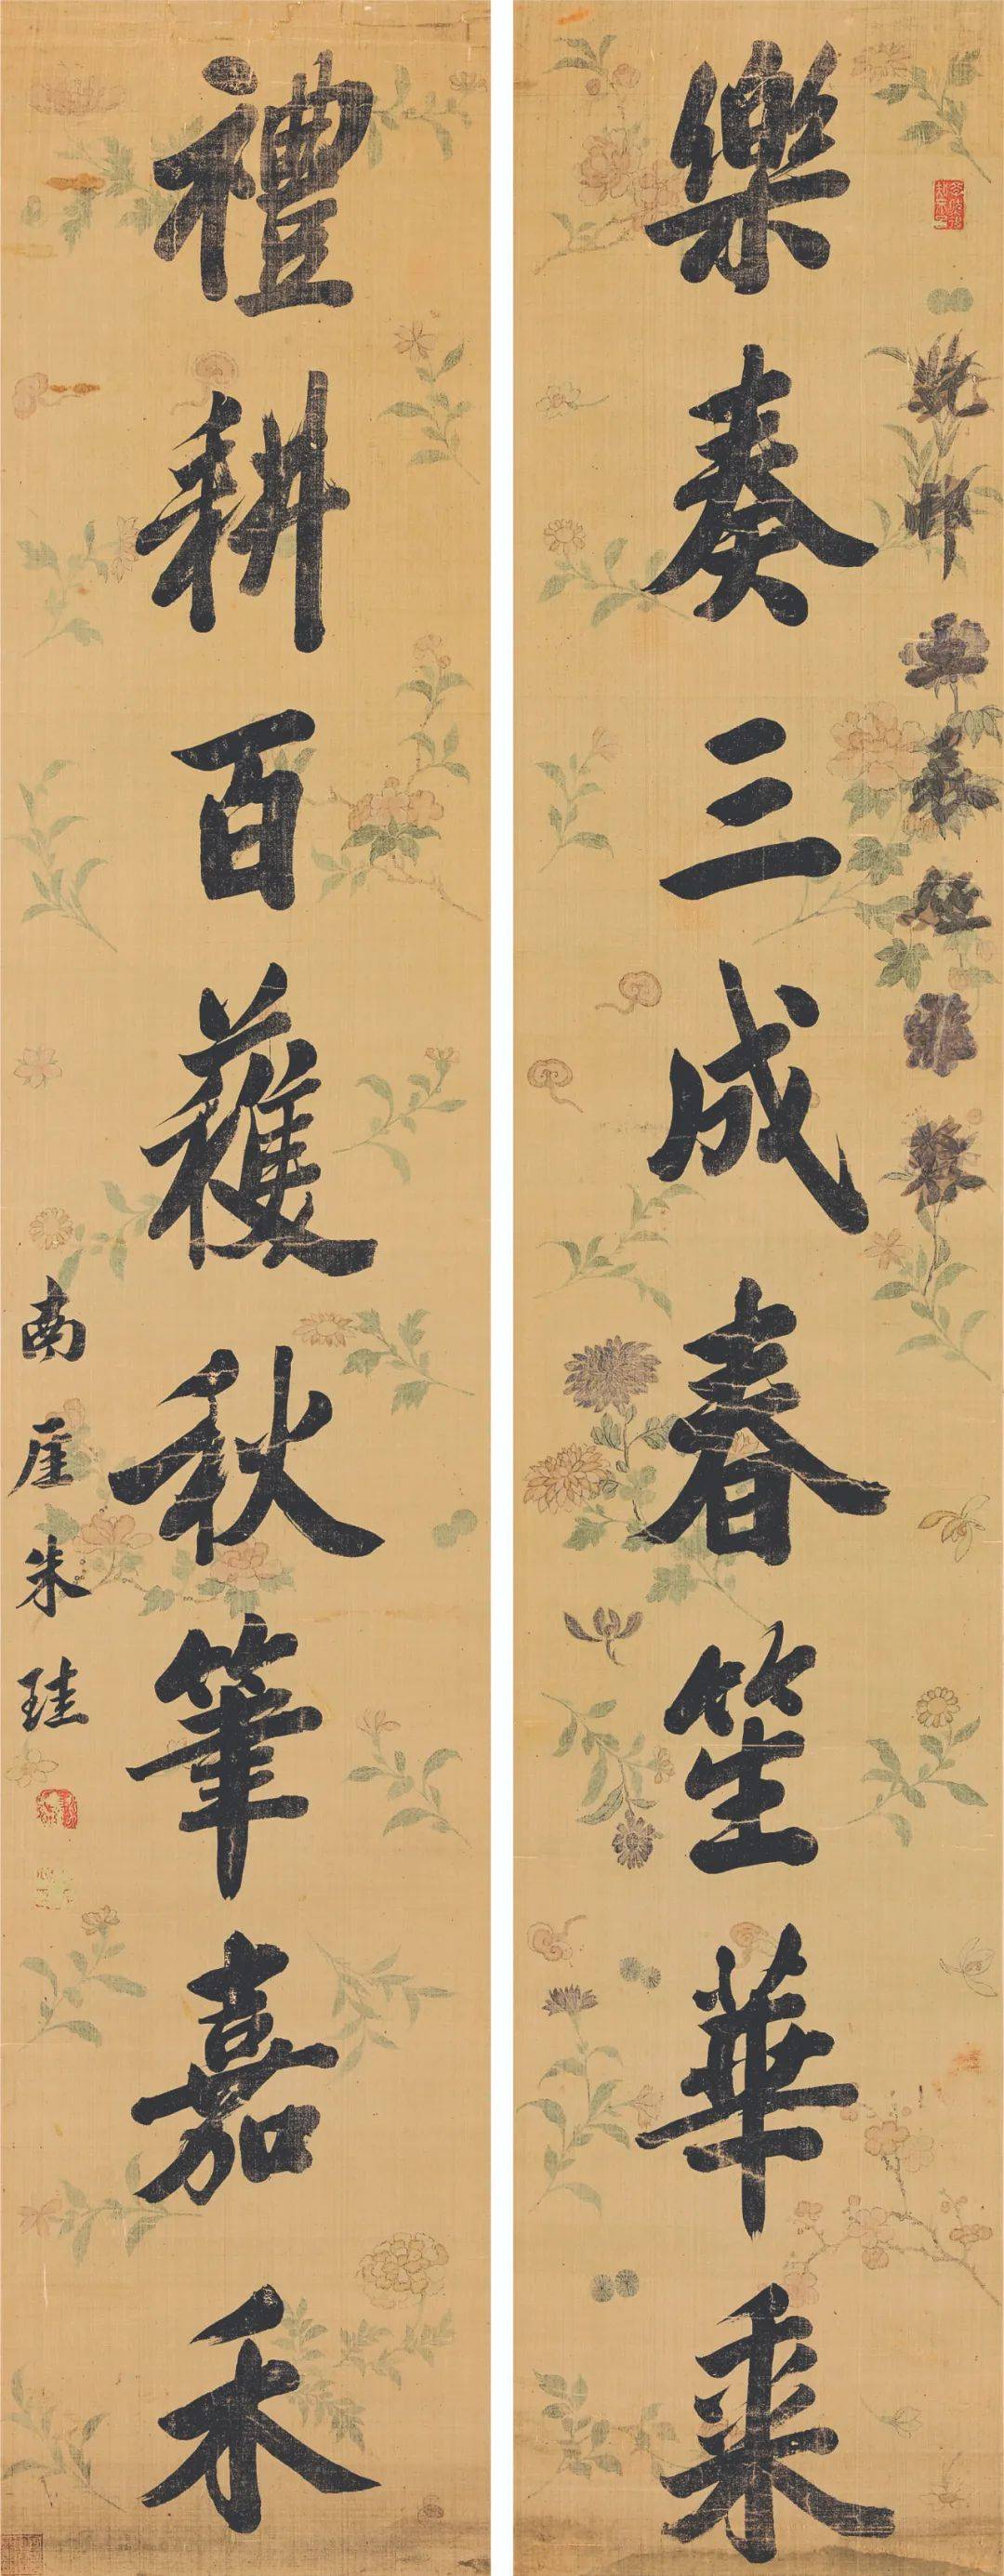 樂奏三成春笙華黍
禮耕百穫秋筆嘉禾
南厓朱珪